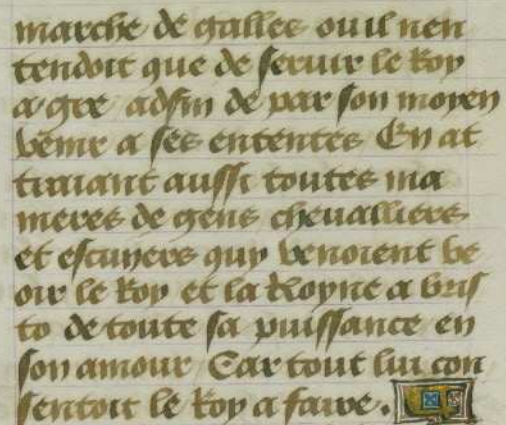 marche de galles ou il nen
tendoit que de seruir le Roy
a gre adfin de par son moyen
venir a ses ententes En at
traiant aussi toutes ma
nieres de gens chevalliers
et escuyers quy venoient ve
oir le Roy et la Royne a bris
to de toute sa puissance en
son amour Car tout lui con
sentoit le Roy a faire.